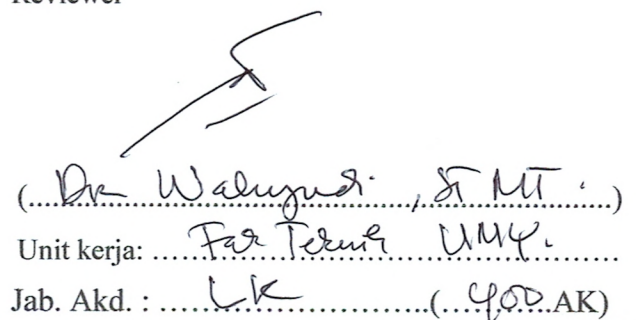 Reviewer
(Dr Wahyudi, ST MT.)
Unit kerja: Fak Teknik UMY.
Jab. Akd. : LK (400 AK)